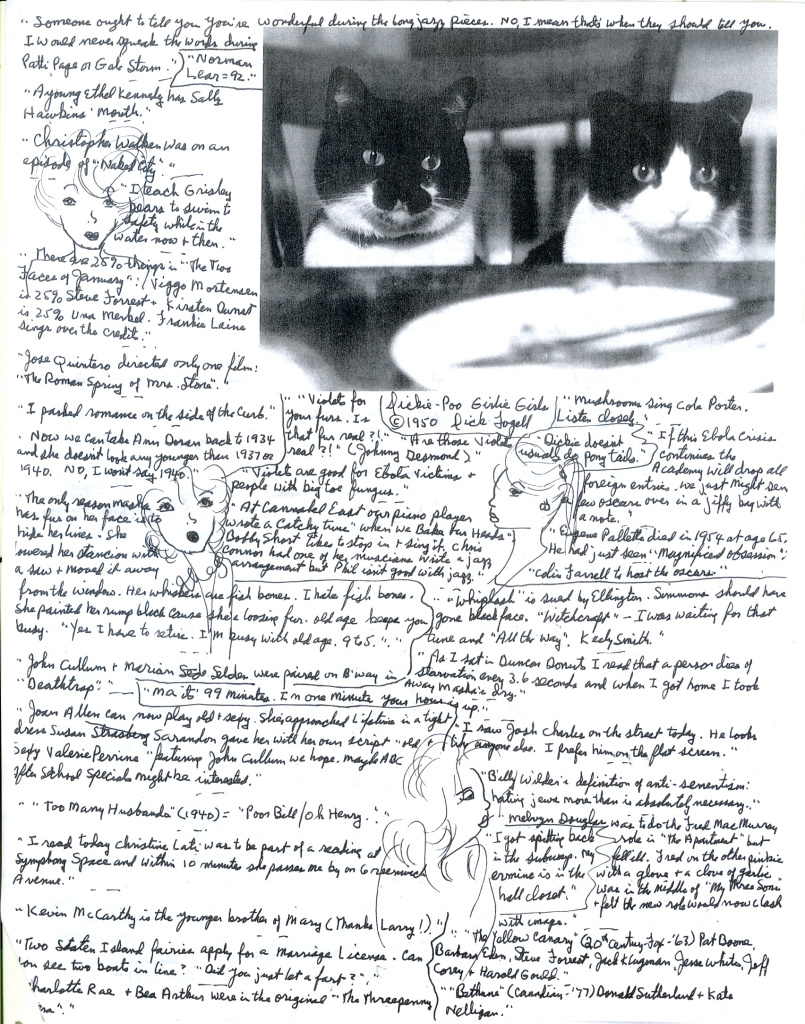 "Someone ought to tell you you're wonderful during the long jazz pieces. No, I mean that's when they should tell you.
I would never squeak the words during
Patti Page or Gale Storm."
"Norman
Lear = 92."
"A young Ethel Kennedy has Sally
Hawkins' mouth."
"Christopher Walken was on an
episode of "Naked City"."
"I teach Grisley
bears to swim to
safety while in the
water now + then."
"There are 25% things in "The Two
Faces of January": Viggo Mortensen
is 25% Steve Forrest + Kirsten Dunst
is 25% Una Merkel. Frankie Laine
sings over the credit."
"Jose Quintero directed only one film:
"The Roman Spring of Mrs. Stone"."
"I parked romance on the side of the curb."
"Violets for
your furs. Is
that fur real?!"
real?!" (Johnny Desmond)
Dickie-Poo Girlie Girls
©1950 Dick Fogell
"Are those Violets
"Mushrooms sing Cole Porter.
Listen closely."
"Dickie doesn't
usually do pony tails.
"If this Ebola Crisis
continues the
Academy will drop all
foreign entries. We just might see
a few oscars over in a jiffy bag with
a note."
Now we can take Ann Doran back to 1934
and she doesn't look any younger than 1937 or
1940. No, I won't say 1940."
"Violets are good for Ebola Victims +
people with big toe fungus."
"The only reason Masha
has fur on her face is to
hide her lines. She
lowered her stancion with
a saw + moved it away
from the window. Her whiskers are fish bones. I hate fish bones.
She painted her rump black cause she's loosing fur. old age keeps you
busy. "Yes I have to retire. I'm busy with old age. 9 to 5."."
"At Cannabel East our piano player
wrote a catchy tune "When we Bake Our Hash".
Bobby Short likes to stop in + sing it. Chris
Connor had one of her musicians write a jazz
arrangement but Phil isn't good with jazz."
"Eugene Pallette died in 1954 at age 65.
He had just seen "Magnificent Obsession"."
"Colin Farrell to host the oscars."
"Whiplash" is sued by Ellington. Simmons should have
gone blackface. "Witchcraft" - I was waiting for that
tune and "All the Way". Keely Smith."
"As I sat in Duncan Donuts I read that a person dies of
starvation every 3.6 seconds and when I got home I took
away Masha's dry."
"John Cullum + Marian Selden were paired on B'way in
"Deathtrap"."
"Ma it's 99 minutes. I'm one minute your hour is up."
"Joan Allen can now play old + sexy. She approached Lifetime in a tight
dress Susan Sarandon gave her with her own script "old +
sexy Valerie Perrine" featuring John Cullum we hope. maybe ABC
After School Specials might be interested."
"I saw Josh Charles on the street today. He looks
like anyone else. I prefer him on the flat screen."
"Billy Wilder's definition of anti-semetism:
hating jews more than is absolutely necessary."
""Too Many Husbands" (1940) = "Poor Bill/Oh Henry."
"Melvyn Douglas was to do the Fred MacMurray
role in "The Apartment" but
fell ill. Fred on the other pinkie
with a glove + a clove of garlic
was in the middle of "My Three Sons"
+ felt the new role would now clash
with image."
"I got spitting back
in the subway. My
ermine is in the
hall closet."
"I read today Christine Lahti was to be part of a reading at
Symphony Space and within 10 minutes she passes me by on Greenwich
Avenue."
"Kevin McCarthy is the younger brother of Mary (Thanks Larry!)."
""The Yellow Canary" (20th Century-Fox - '63) Pat Boone,
Barbara Eden, Steve Forrest, Jack Klugman, Jesse White, Jeff
Corey + Harold Gould."
"Two Staten Island fairies apply for a Marriage License. Can
you see two boats in line?" "Did you just let a fart?"."
""Bethune" (Canadian - '77) Donald Sutherland + Kate
Nelligan."
Charlotte Rae + Bea Arthur were in the original "The Threepenny